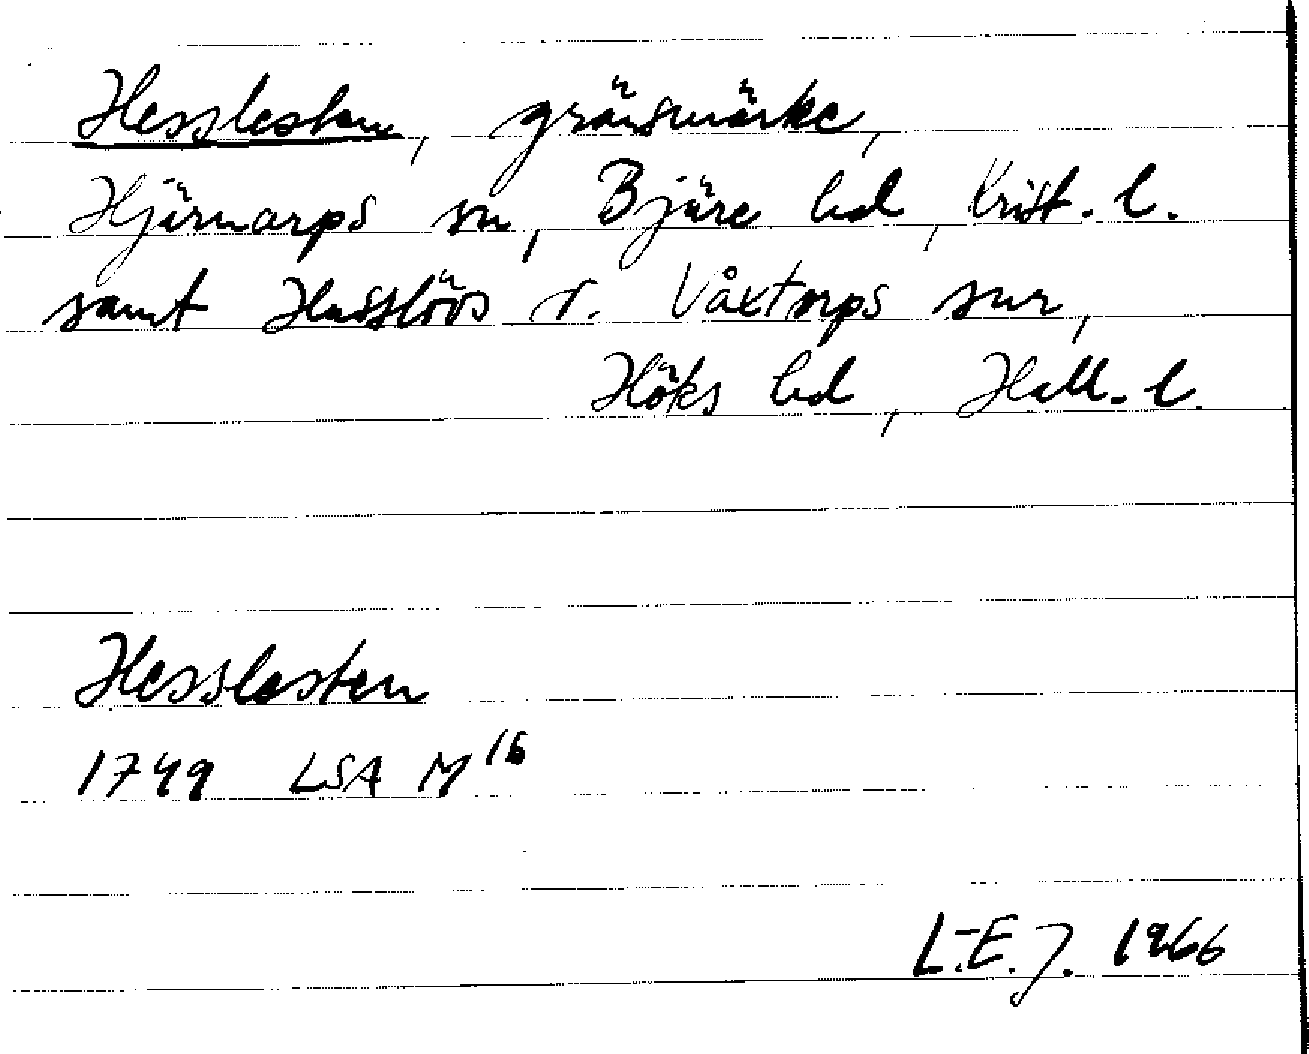 Hesslesten, gränsmärke,
Hjärnarps sn, Bjäre hd, Krist. l.
samt Hasslövs o. Våxtorps snr,
Höks hd, Hall. l.
Hesslesten
1749 LSA M 16
L.-E. J. 1966